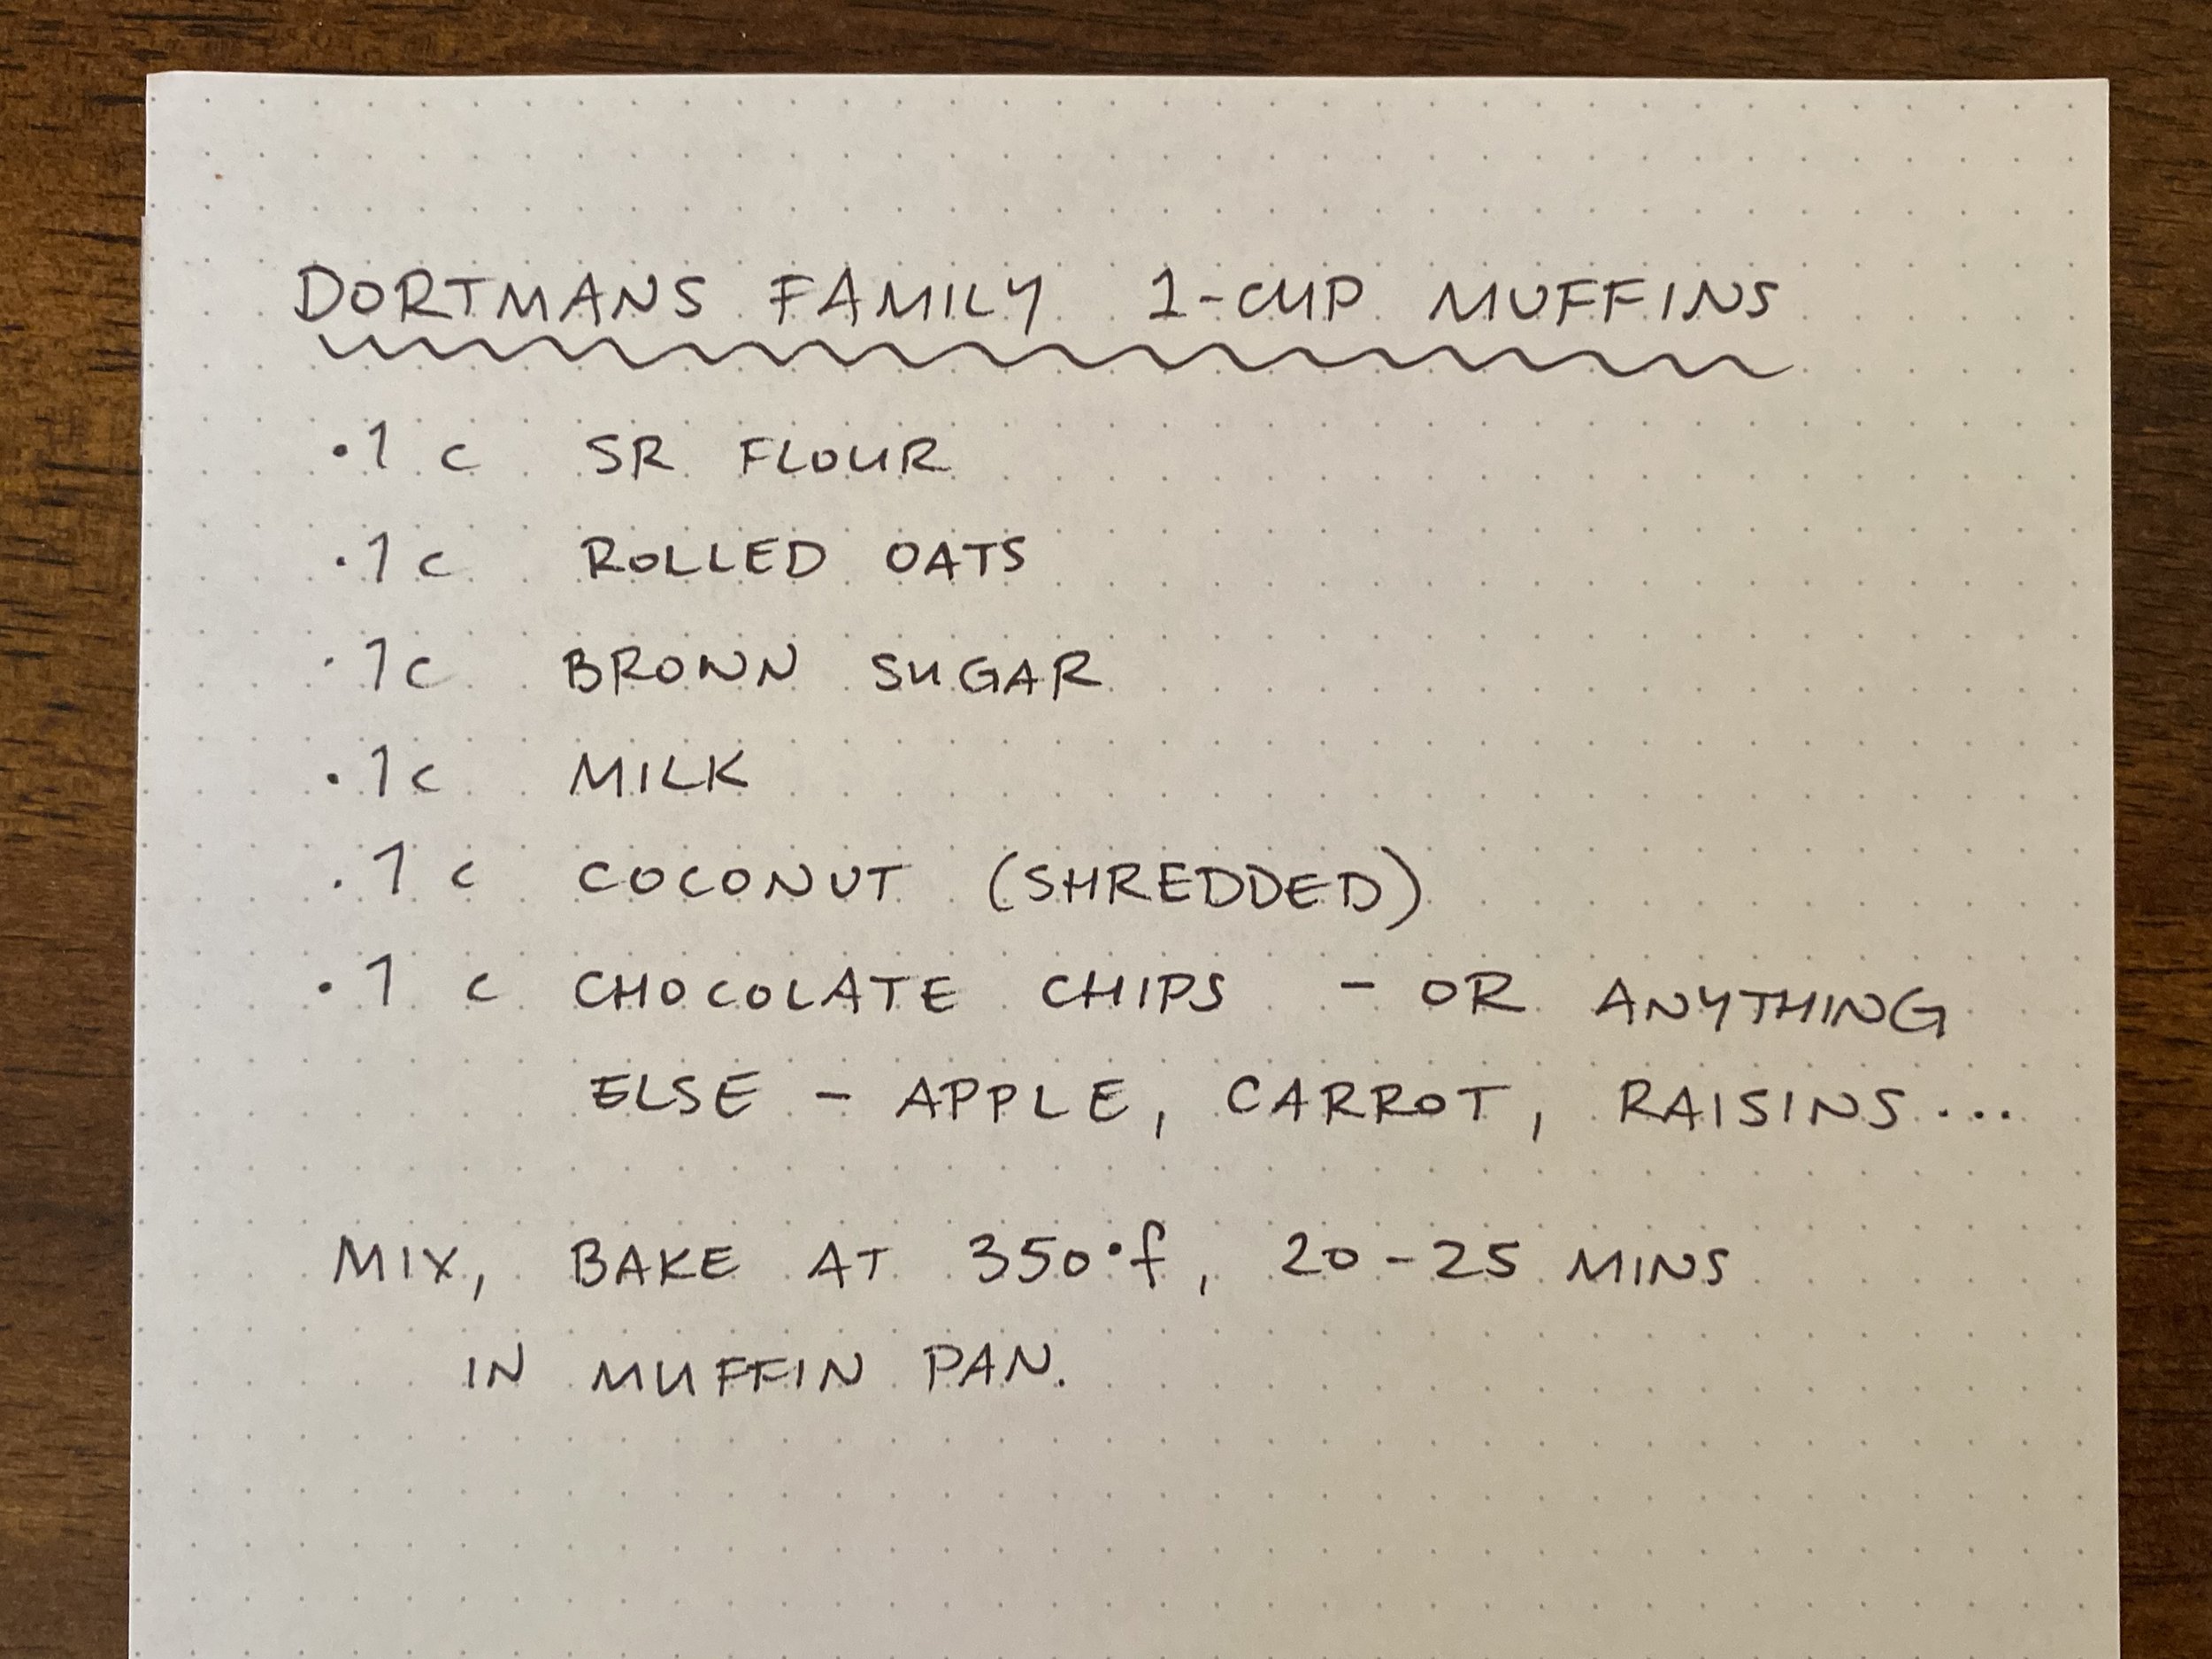 DORTMANS FAMILY 1-CUP MUFFINS
·1 c SR FLOUR
·1 c ROLLED OATS
·1 c BROWN SUGAR
·1 c MILK
·1 c COCONUT (SHREDDED)
·1 c CHOCOLATE CHIPS - OR ANYTHING
ELSE - APPLE, CARROT, RAISINS...
MIX, BAKE AT 350°f, 20-25 MINS
IN MUFFIN PAN.